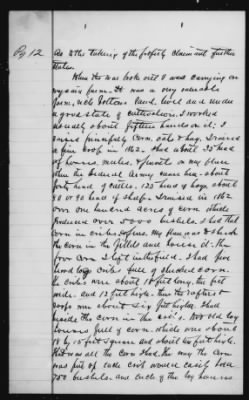 Pg 12
As to the taking of the property claimant further
states.
When the war broke out I was carrying on
my own farm. It was a very valuable
farm, rich bottom land, well and under
a good state of cultivation. I worked
usually about fifteen hands on it; I
raised principally corn, oats & hay. I raised
a fine crop in 1862. Had about 35 head
of horses, mules, & on my place
when the Federal Army came here - about
forty head of cattle. 125 head of hogs about
80 or 90 head of sheep. I raised in 1862
over one hundred acres of corn, which
produced over bushels. I had that
corn in cribs & pens. My plan was to shuck
the corn in the fields and house it: the
corn I left in the field. I had five
cribs full of shucked corn.
The cribs were about 18 feet long, ten feet
wide and 12 feet high. then the rafters &
roofs were about six feet higher. That
besides the corn in the We had old log
houses full of corn. which were about
18 by 15 feet square and about ten feet high.
That was all the corn I had. The way the corn
was put up each crib would easily hold
750 bushels and each of the log houses